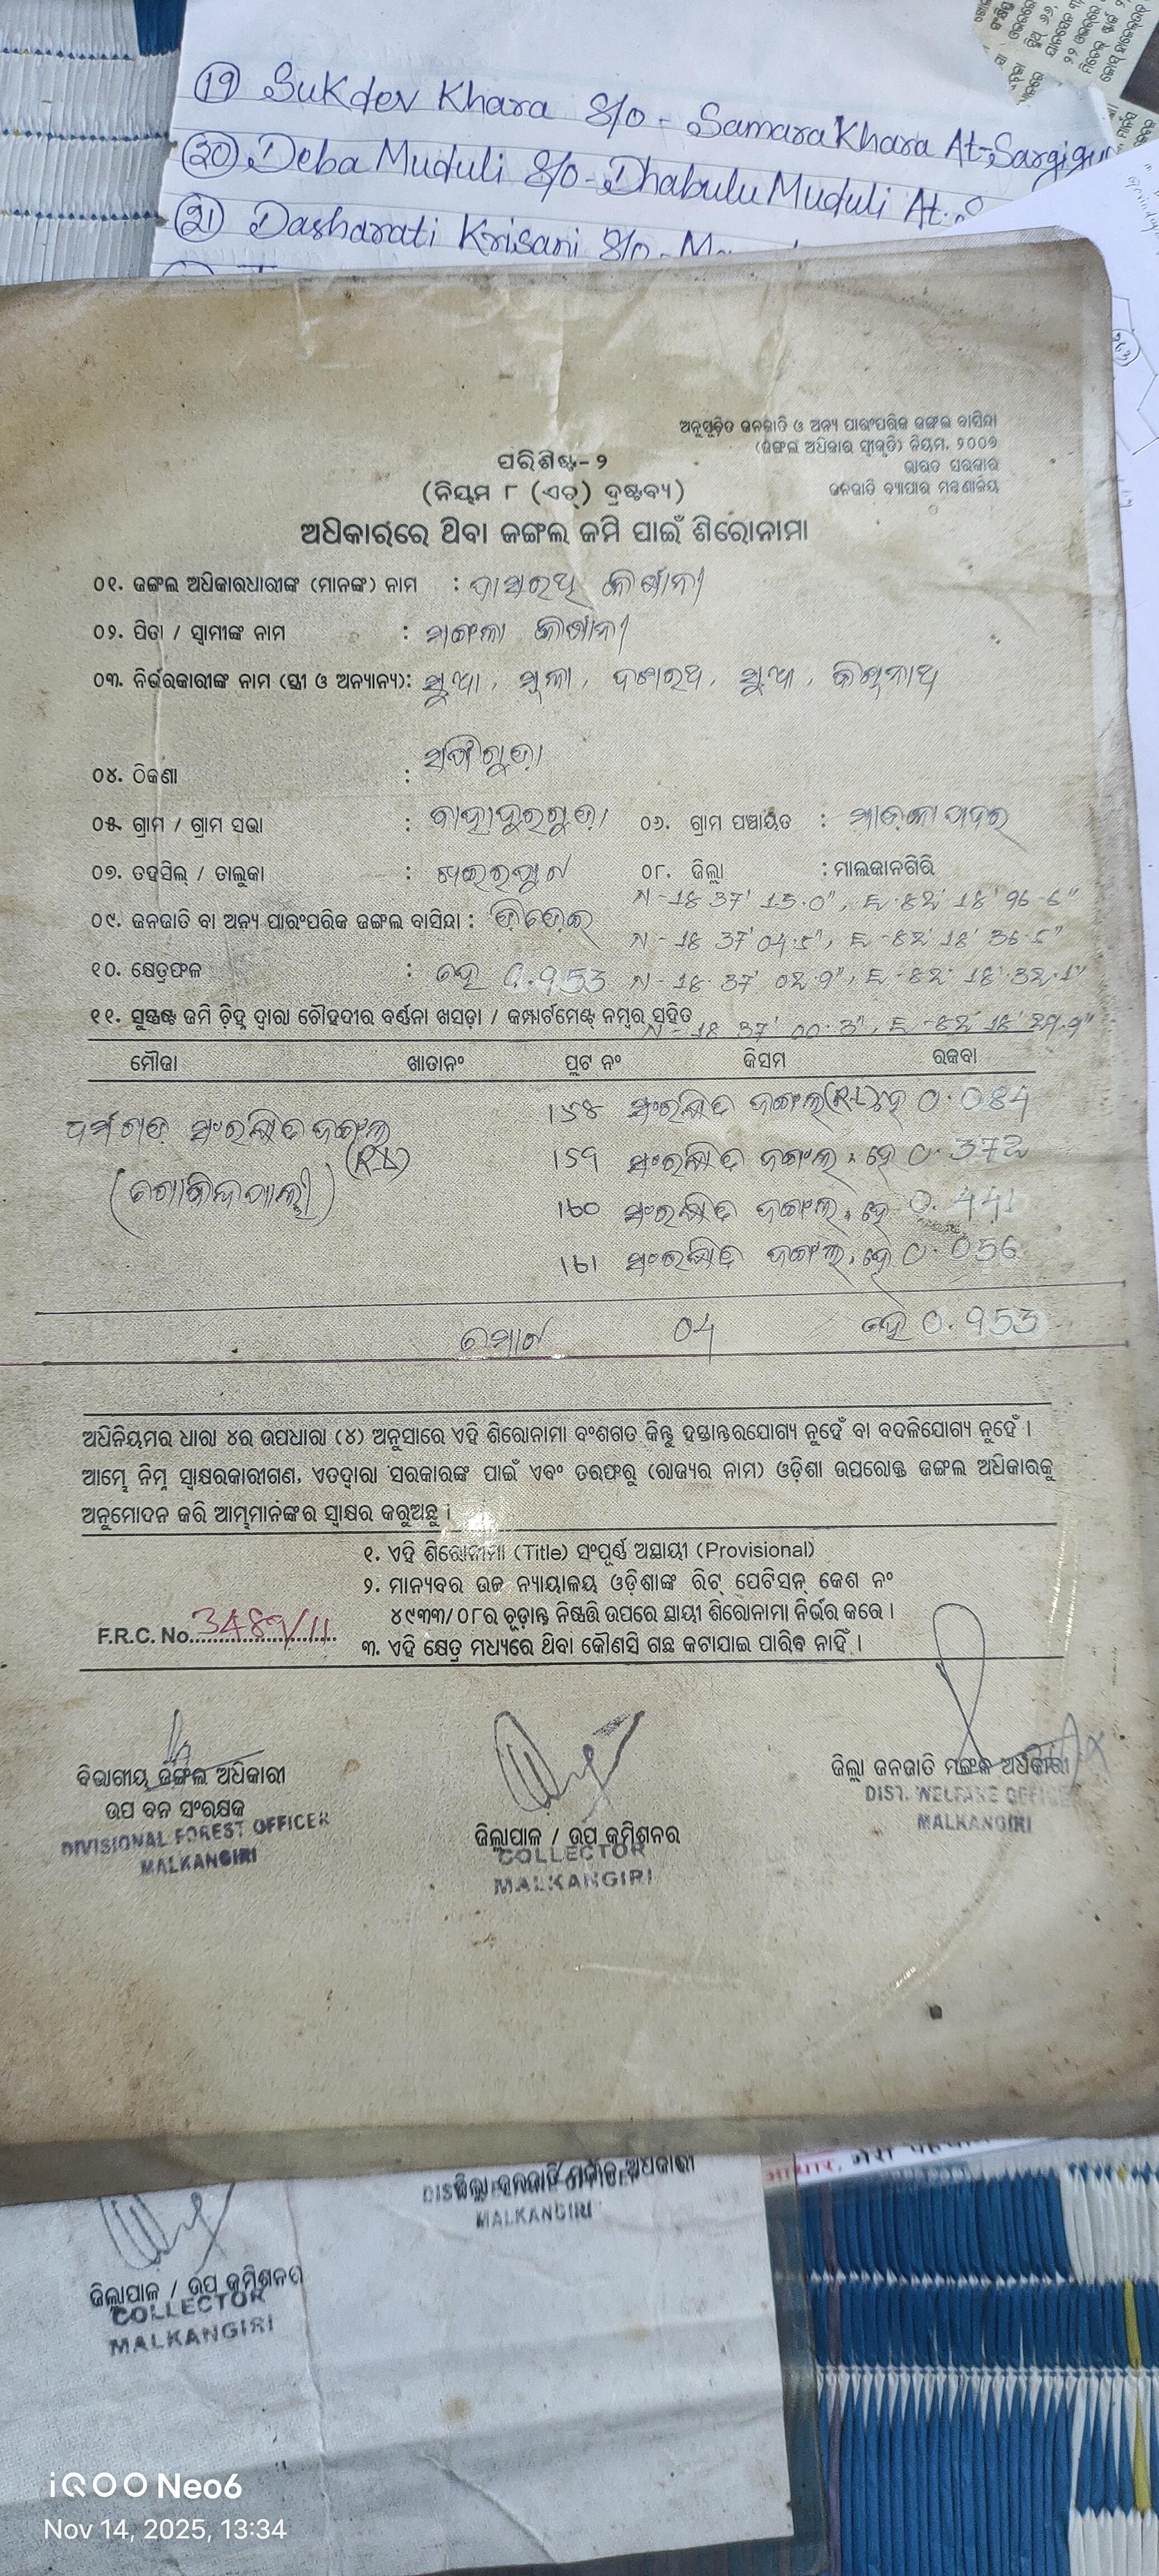 (19) Sukdev Khara S/o - Samara Khara At-Sargigu
(20) Deba Muduli S/o - Dhabulu Muduli At-S
(21) Dasharati Krisani S/o - Ma
ଅନୁସୂଚିତ ଜନଜାତି ଓ ଅନ୍ୟ ପାରଂପରିକ ଜଙ୍ଗଲ ବାସିନ୍ଦା
(ଜଙ୍ଗଲ ଅଧିକାର ସ୍ୱୀକୃତି) ନିୟମ, ୨୦୦୭
ଭାରତ ସରକାର
ଜନଜାତି ବ୍ୟାପାର ମନ୍ତ୍ରଣାଳୟ
ପରିଶିଷ୍ଟ-୨
(ନିୟମ ୮ (ଏଚ୍) ଦ୍ରଷ୍ଟବ୍ୟ)
ଅଧିକାରରେ ଥିବା ଜଙ୍ଗଲ ଜମି ପାଇଁ ଶିରୋନାମା
୦୧. ଜଙ୍ଗଲ ଅଧିକାରଧାରୀଙ୍କ (ମାନଙ୍କ) ନାମ :
୦୨. ପିତା / ସ୍ୱାମୀଙ୍କ ନାମ : ମଙ୍ଗଳା
୦୩. ନିର୍ଭରକାରୀଙ୍କ ନାମ (ସ୍ତ୍ରୀ ଓ ଅନ୍ୟାନ୍ୟ):
୦୪. ଠିକଣା : ସର୍ଗିଗୁଡ଼ା
୦୫. ଗ୍ରାମ / ଗ୍ରାମ ସଭା : ବାହାଦୁରଗୁଡ଼ା ୦୬. ଗ୍ରାମ ପଞ୍ଚାୟତ :
୦୭. ତହସିଲ୍ / ତାଲୁକା : ଖଇରପୁଟ ୦୮. ଜିଲ୍ଲା : ମାଲକାନଗିରି
N-18 37' 13.0", E-82' 18' 96.6"
୦୯. ଜନଜାତି ବା ଅନ୍ୟ ପାରଂପରିକ ଜଙ୍ଗଲ ବାସିନ୍ଦା :
N-18 37' 04.5", E-82' 18' 36.5"
୧୦. କ୍ଷେତ୍ରଫଳ : ହେ 0.953 N-18 37' 02.9", E-82' 18' 32.1"
୧୧. ସୁସ୍ପଷ୍ଟ ଜମି ଚିହ୍ନ ଦ୍ୱାରା ଚୌହଦୀର ବର୍ଣ୍ଣନା ଖସଡ଼ା / କମ୍ପାର୍ଟମେଣ୍ଟ୍ ନମ୍ବର ସହିତ
N-18 37' 00.3", E-82' 18' 29.9"
ମୌଜା ଖାତାନଂ ପ୍ଲଟ ନଂ କିସମ ରକବା
ସଂରକ୍ଷିତ ଜଙ୍ଗଲ 158 ସଂରକ୍ଷିତ ଜଙ୍ଗଲ ହେ 0.084
159 ସଂରକ୍ଷିତ ଜଙ୍ଗଲ, ହେ 0.372
(ଗୋବିନ୍ଦପାଲ୍ଲୀ) 160 ସଂରକ୍ଷିତ ଜଙ୍ଗଲ, ହେ 0.441
161 ସଂରକ୍ଷିତ ଜଙ୍ଗଲ, ହେ 0.056
ମୋଟ 04 ହେ 0.953
ଅଧିନିୟମର ଧାରା ୪ର ଉପଧାରା (୪) ଅନୁସାରେ ଏହି ଶିରୋନାମା ବଂଶଗତ କିନ୍ତୁ ହସ୍ତାନ୍ତରଯୋଗ୍ୟ ନୁହେଁ ବା ବଦଳିଯୋଗ୍ୟ ନୁହେଁ ।
ଆମ୍ଭେ ନିମ୍ନ ସ୍ୱାକ୍ଷରକାରୀଗଣ, ଏତଦ୍ୱାରା ସରକାରଙ୍କ ପାଇଁ ଏବଂ ତରଫରୁ (ରାଜ୍ୟର ନାମ) ଓଡ଼ିଶା ଉପରୋକ୍ତ ଜଙ୍ଗଲ ଅଧିକାରକୁ
ଅନୁମୋଦନ କରି ଆମ୍ଭମାନଙ୍କର ସ୍ୱାକ୍ଷର କରୁଅଛୁ ।
୧. ଏହି ଶିରୋନାମା (Title) ସଂପୂର୍ଣ୍ଣ ଅସ୍ଥାୟୀ (Provisional)
୨. ମାନ୍ୟବର ଉଚ୍ଚ ନ୍ୟାୟାଳୟ ଓଡ଼ିଶାଙ୍କ ରିଟ୍ ପେଟିସନ୍ କେଶ ନଂ
୪୯୩୩/୦୮ର ଚୂଡ଼ାନ୍ତ ନିଷ୍ପତ୍ତି ଉପରେ ସ୍ଥାୟୀ ଶିରୋନାମା ନିର୍ଭର କରେ ।
F.R.C. No. 3489/11
୩. ଏହି କ୍ଷେତ୍ର ମଧ୍ୟରେ ଥିବା କୌଣସି ଗଛ କଟାଯାଇ ପାରିବ ନାହିଁ ।
ବିଭାଗୀୟ ଜଙ୍ଗଲ ଅଧିକାରୀ
ଉପ ବନ ସଂରକ୍ଷକ
DIVISIONAL FOREST OFFICER
MALKANGIRI
ଜିଲ୍ଲାପାଳ / ଉପ କମିଶନର
COLLECTOR
MALKANGIRI
ଜିଲ୍ଲା ଜନଜାତି ମଙ୍ଗଳ ଅଧିକାରୀ
DIST. WELFARE OFFICER
MALKANGIRI
ଜିଲ୍ଲା ଜନଜାତି ମଙ୍ଗଳ ଅଧିକାରୀ
MALKANGIRI
ଜିଲ୍ଲାପାଳ / ଉପ କମିଶନର
COLLECTOR
MALKANGIRI
iQOO Neo6
Nov 14, 2025, 13:34